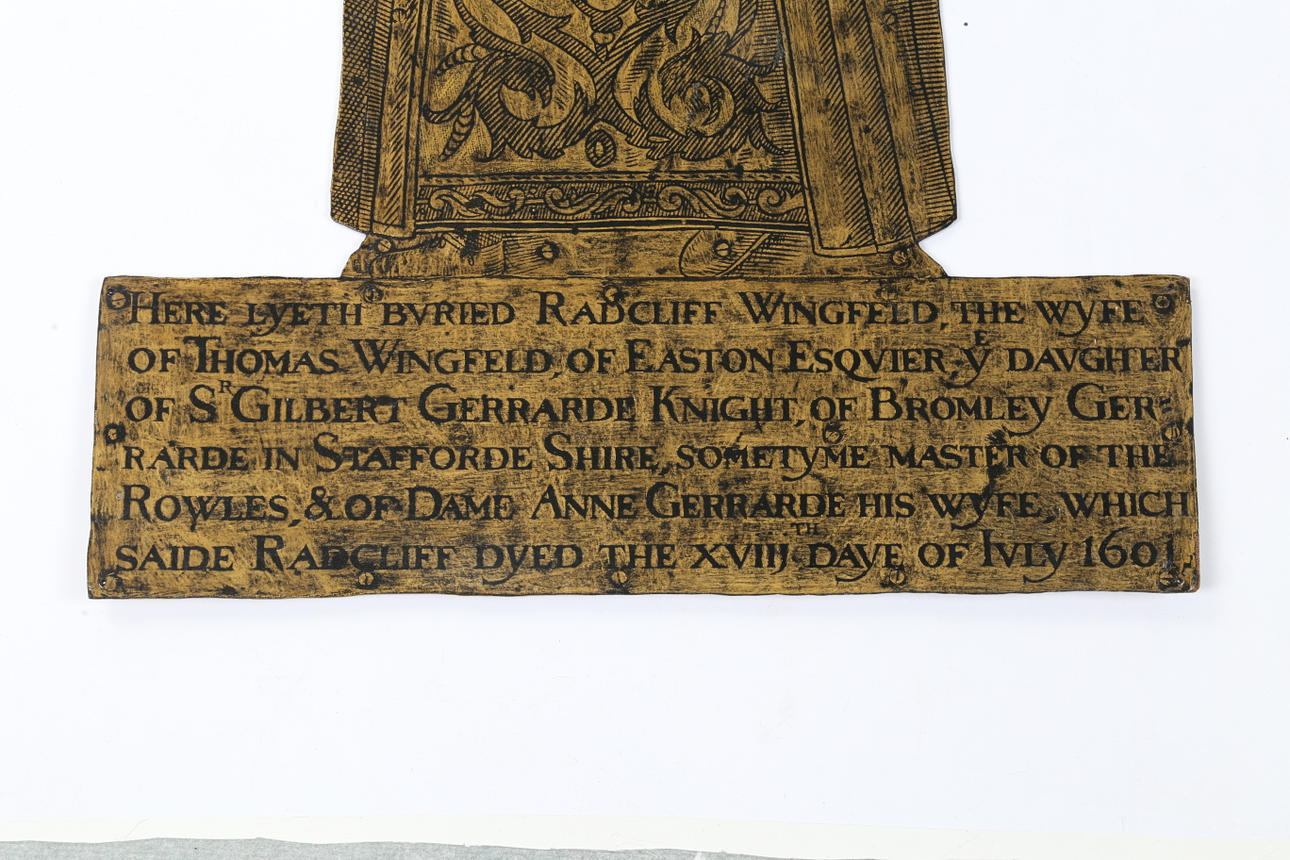 HERE LYETH BVRIED RADCLIFF WINGFELD, THE WYFE
OF THOMAS WINGFELD, OF EASTON ESQVIER, Yᴱ DAVGHTER
OF Sᴿ GILBERT GERRARDE KNIGHT, OF BROMLEY GER=
RARDE IN STAFFORDE SHIRE, SOMETYME MASTER OF THE
ROWLES, & OF DAME ANNE GERRARDE HIS WYFE, WHICH
SAIDE RADCLIFF DYED THE XVIIJᵀᴴ DAYE OF IVLY 1601